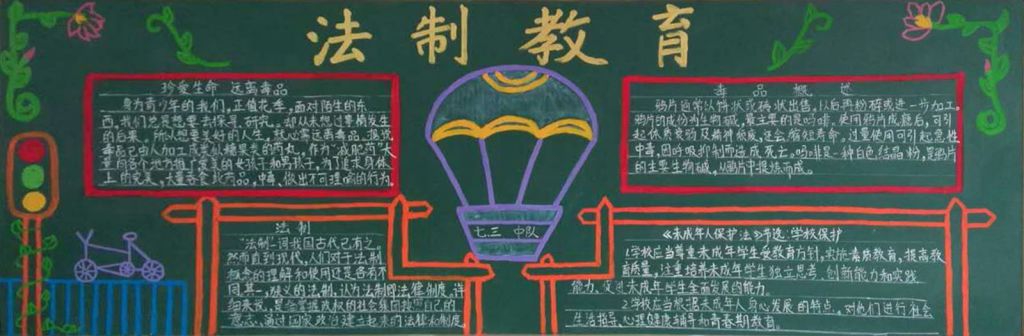 法制教育
珍爱生命 远离毒品
身为青少年的我们，正值花季，面对陌生的东
西，我们总是想要去探寻、研究。却从未想过事情发生
的后果，所以想要美好的人生，就必需远离毒品。据说
毒品是由人加工成类似糖果类的药丸。作为"减肥药"大
量用各个地方推广爱美的女孩子和男孩子，为了追求身体
上的完美，大量吞食此药品，中毒、做出不可理喻的行为。
毒品概述
鸦片通常以饼状或砖状出售，以后再粉碎或进一步加工。
鸦片的成份为生物碱，最主要的是吗啡。使用鸦片成瘾后，可引
起体质衰弱及精神颓废，还会缩短寿命，过量使用可引起急性
中毒，因呼吸抑制而造成死亡。吗啡是一种白色结晶粉，是鸦片
的主要生物碱，从鸦片中提炼而成。
七.三 中队
法制
"法制"一词我国古代已有之。
然而直到现代，人们对于法制
概念的理解和使用还是各有不
同。其一，狭义的法制，认为法制即法律制度。详
细来说，是指掌握政权的社会集团按照自己的
意志、通过国家政治建立起来的法律和制度。
《未成年人保护法》节选：学校保护
1.学校应当尊重未成年学生受教育方针，实施素质教育，提高教
育质量，注重培养未成年学生独立思考、创新能力和实践
能力，促进未成年学生全面发展的能力。
2.学校应当根据未成年人身心发展的特点，对他们进行社会
生活指导、心理健康辅导和青春期教育。